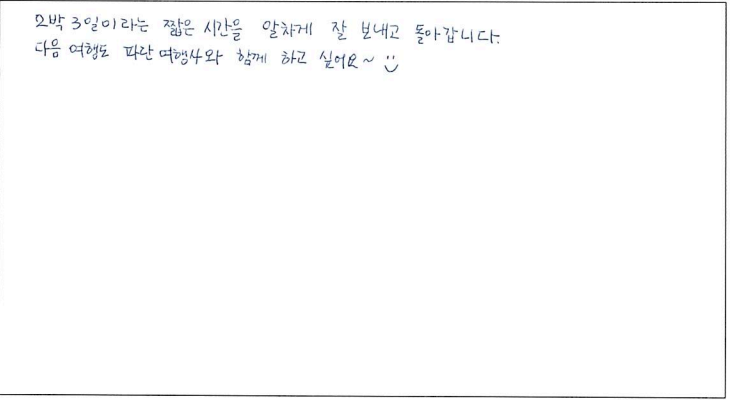 2박 3일이라는 짧은 시간을 알차게 잘 보내고 돌아갑니다.
다음 여행도 파란여행사와 함께 하고 싶어요~ :)